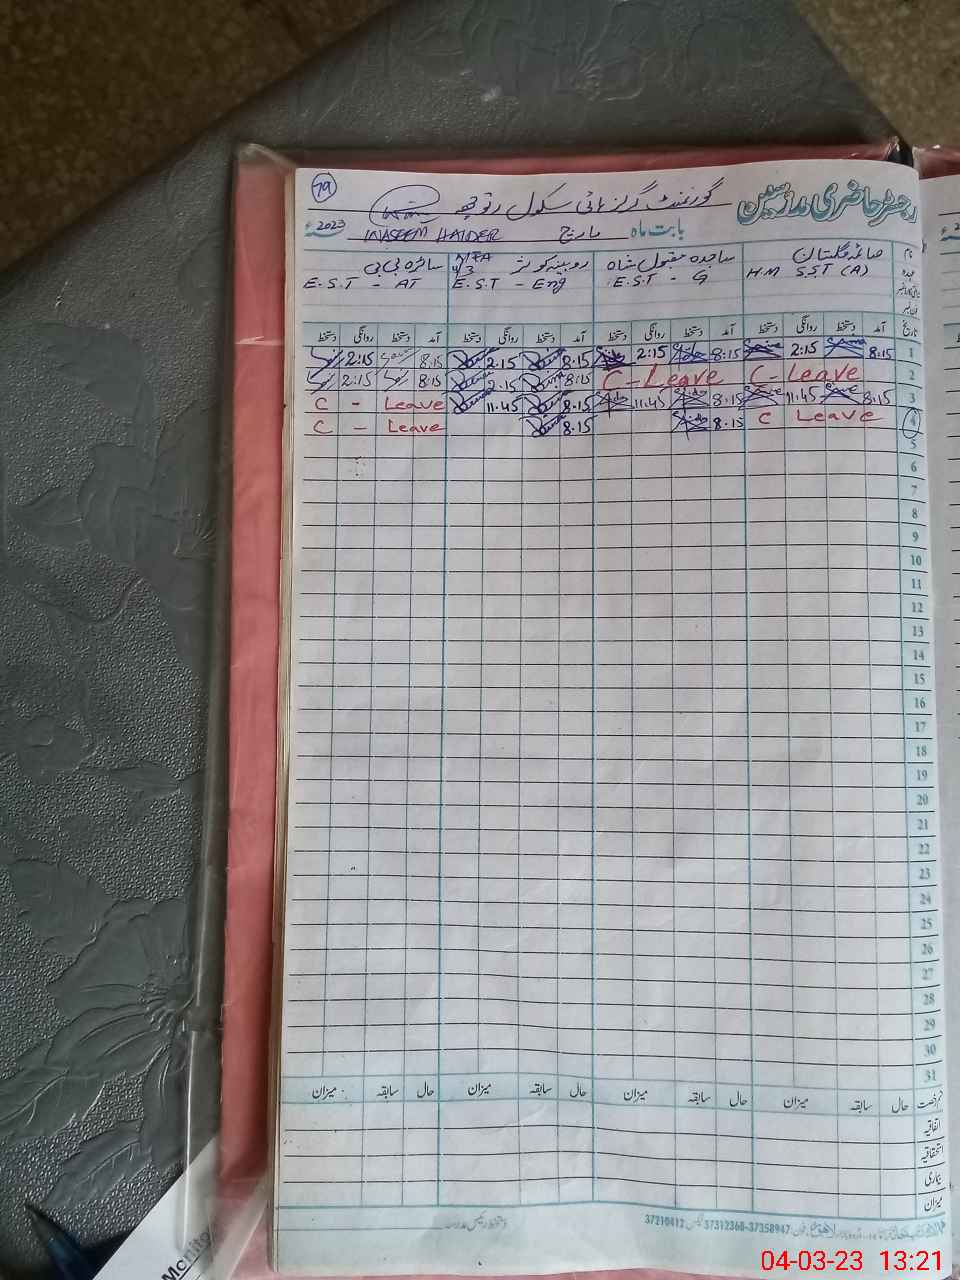 79
رجسٹر حاضری مدرسین
گورنمنٹ گرلز ہائی سکول رتوچھہ
بابت ماہ مارچ WASEEM HAIDER 2023ء
نام صائمہ گلستان ساجدہ مقبول شاہ روبینہ کوثر سائرہ بی بی
عہدہ H.M S.S.T (A) E.S.T - G E.S.T - Eng E.S.T - AT
تاریخ آمد دستخط روانگی دستخط آمد دستخط روانگی دستخط آمد دستخط روانگی دستخط آمد دستخط روانگی دستخط
1 8:15 2:15 8:15 2:15 8.15 2.15 8.15 2:15
2 C - Leave C - Leave 8:15 2.15 8.15 2:15
3 8.15 11.45 8.15 11.45 8.15 11.45 C - Leave
4 C Leave 8.15 8.15 C - Leave
5
6
7
8
9
10
11
12
13
14
15
16
17
18
19
20
21
22
23
24
25
26
27
28
29
30
31
قسم رخصت حال سابقہ میزان حال سابقہ میزان حال سابقہ میزان حال سابقہ میزان
اتفاقیہ
استحقاقیہ
بیماری
میزان
دستخط رئیس مدرسہ
37312368-37358947 37210412
04-03-23 13:21